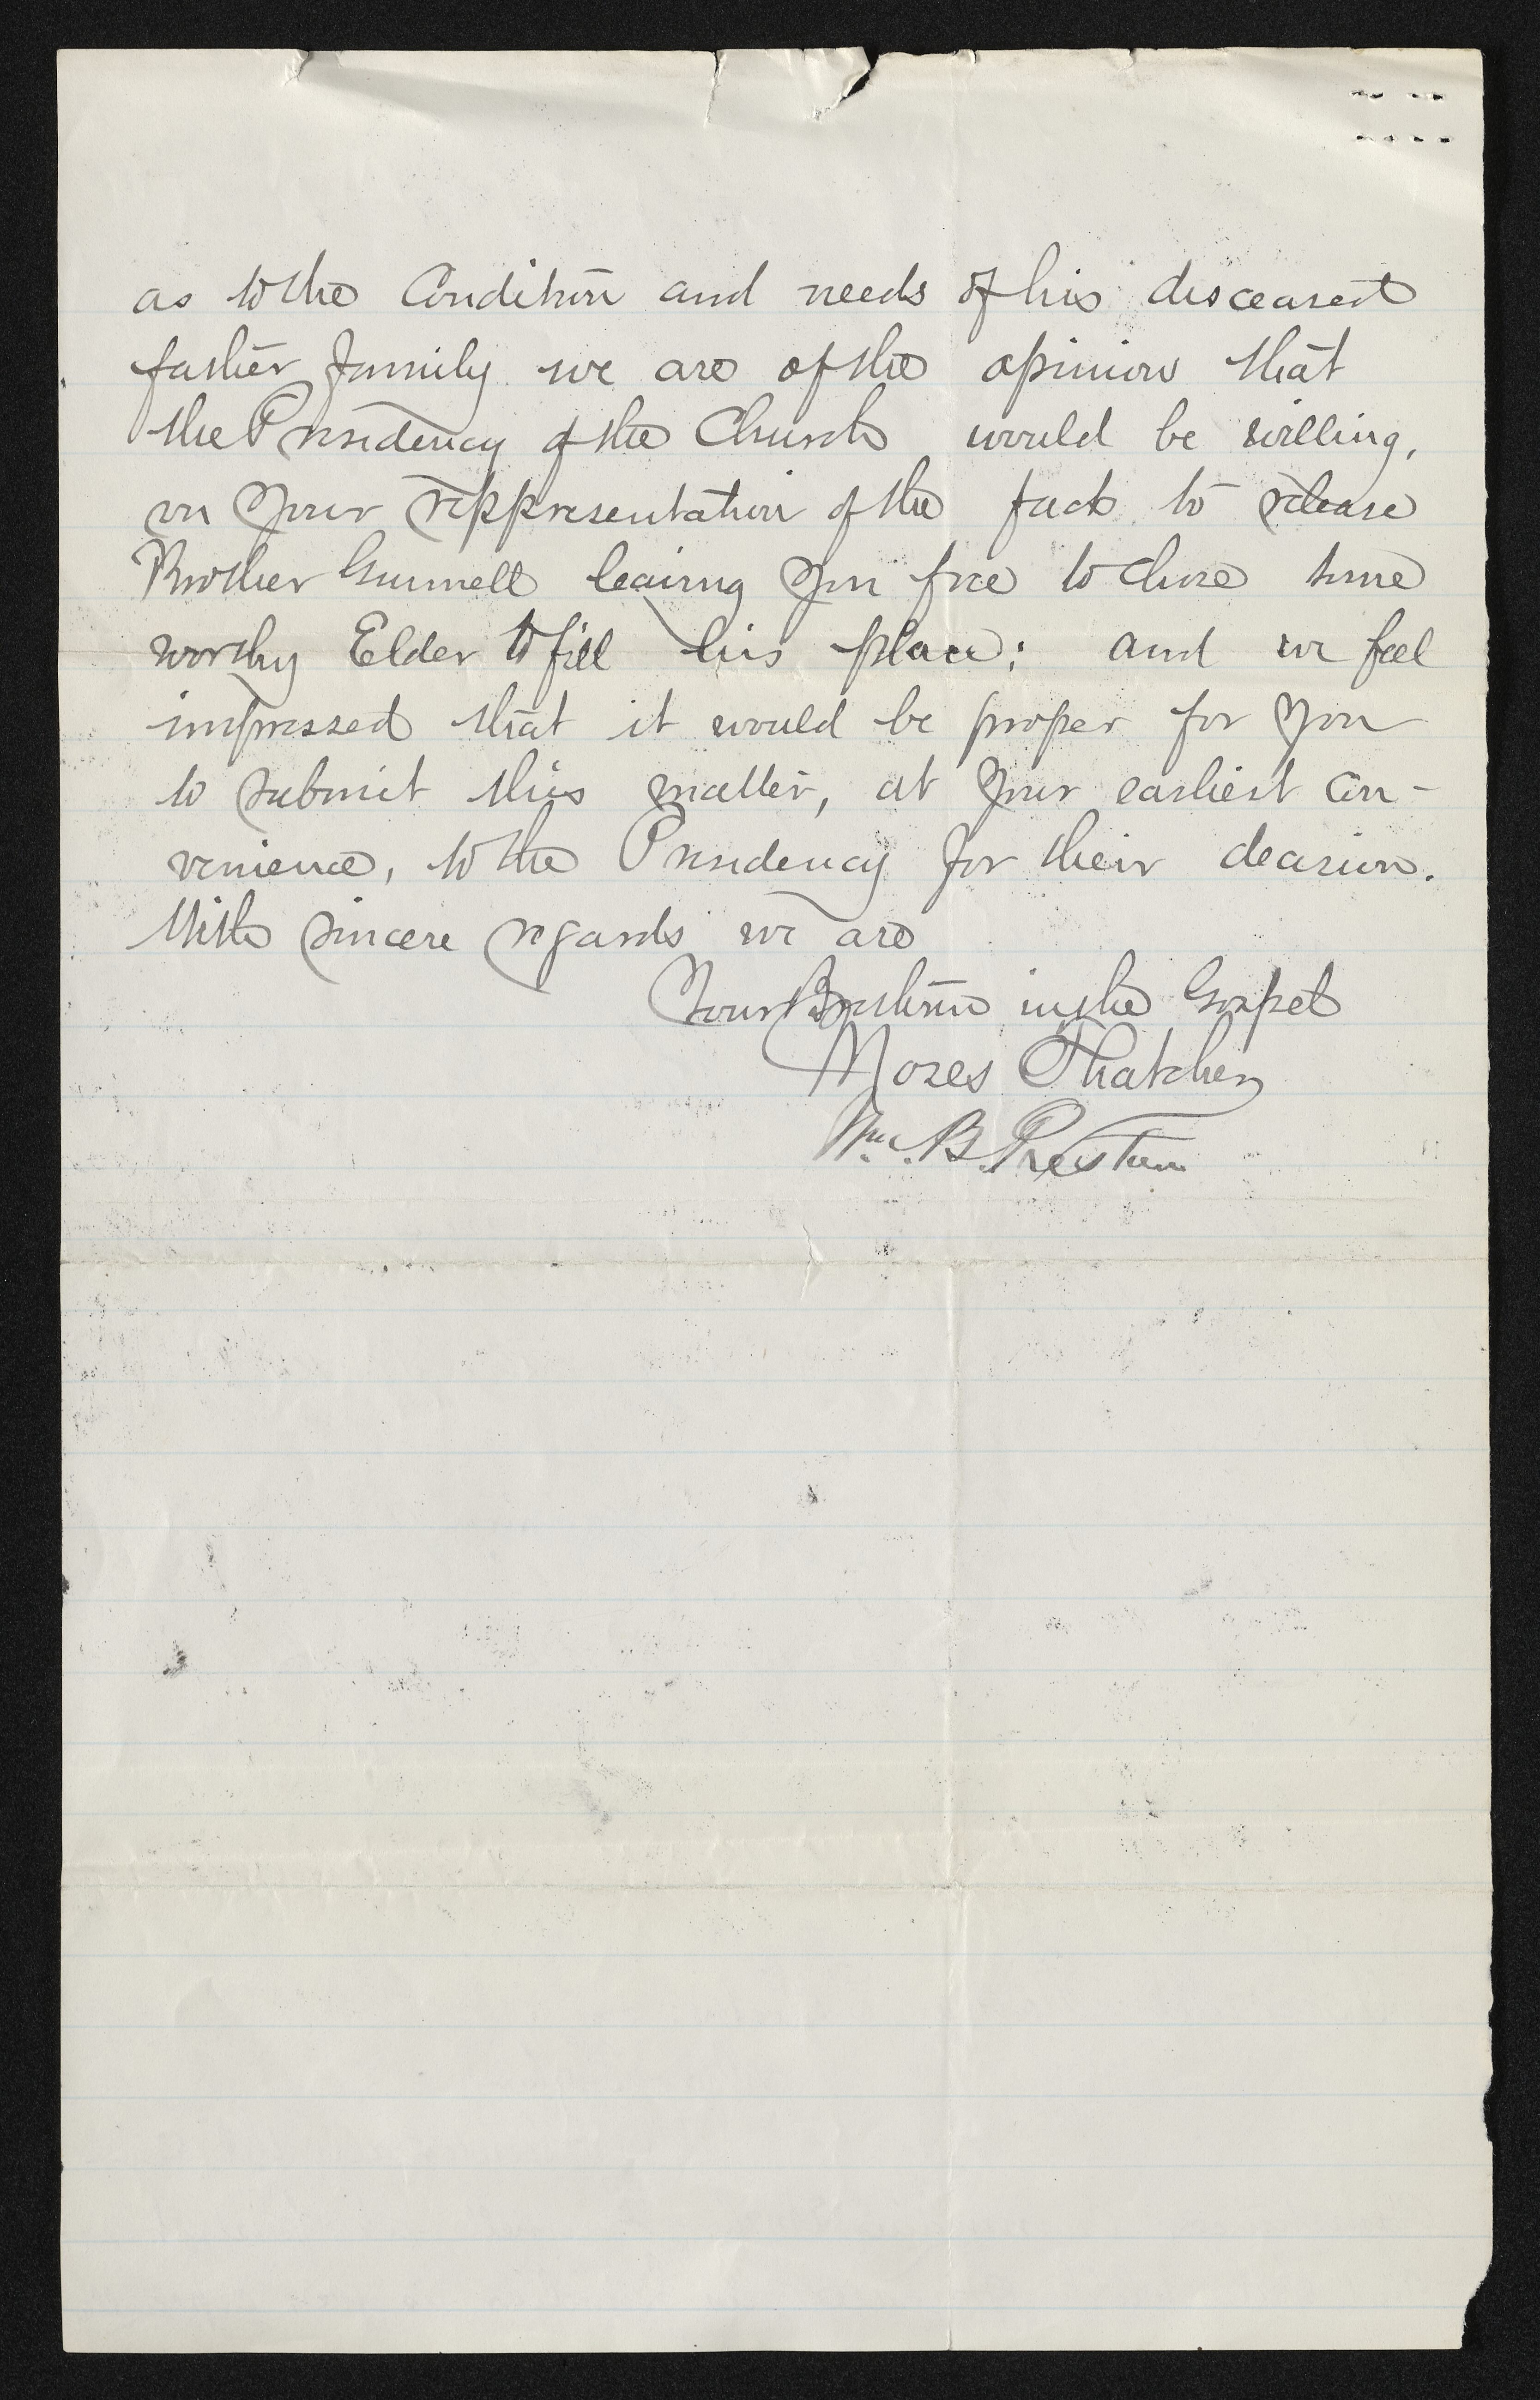 as to the Condition and needs of his disceased
father family we are of the opinion that
the Presidency of the Church would be willing,
on your reppresentation of the facts to release
Brother Gunnell leaving you free to chose some
worthy Elder to fill his place: and we feel
impressed that it would be proper for you
to submit this matter, at your earliest con-
venience, to the Presidency for their decision.
With sincere regards we are
Your Brethren in the Gospel
Moses Thatcher
Wm. B. Preston